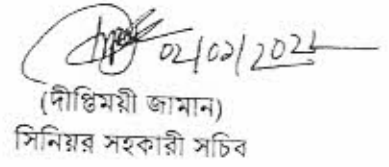 02/02/2021
(দীপ্তিময়ী জামান)
সিনিয়র সহকারী সচিব